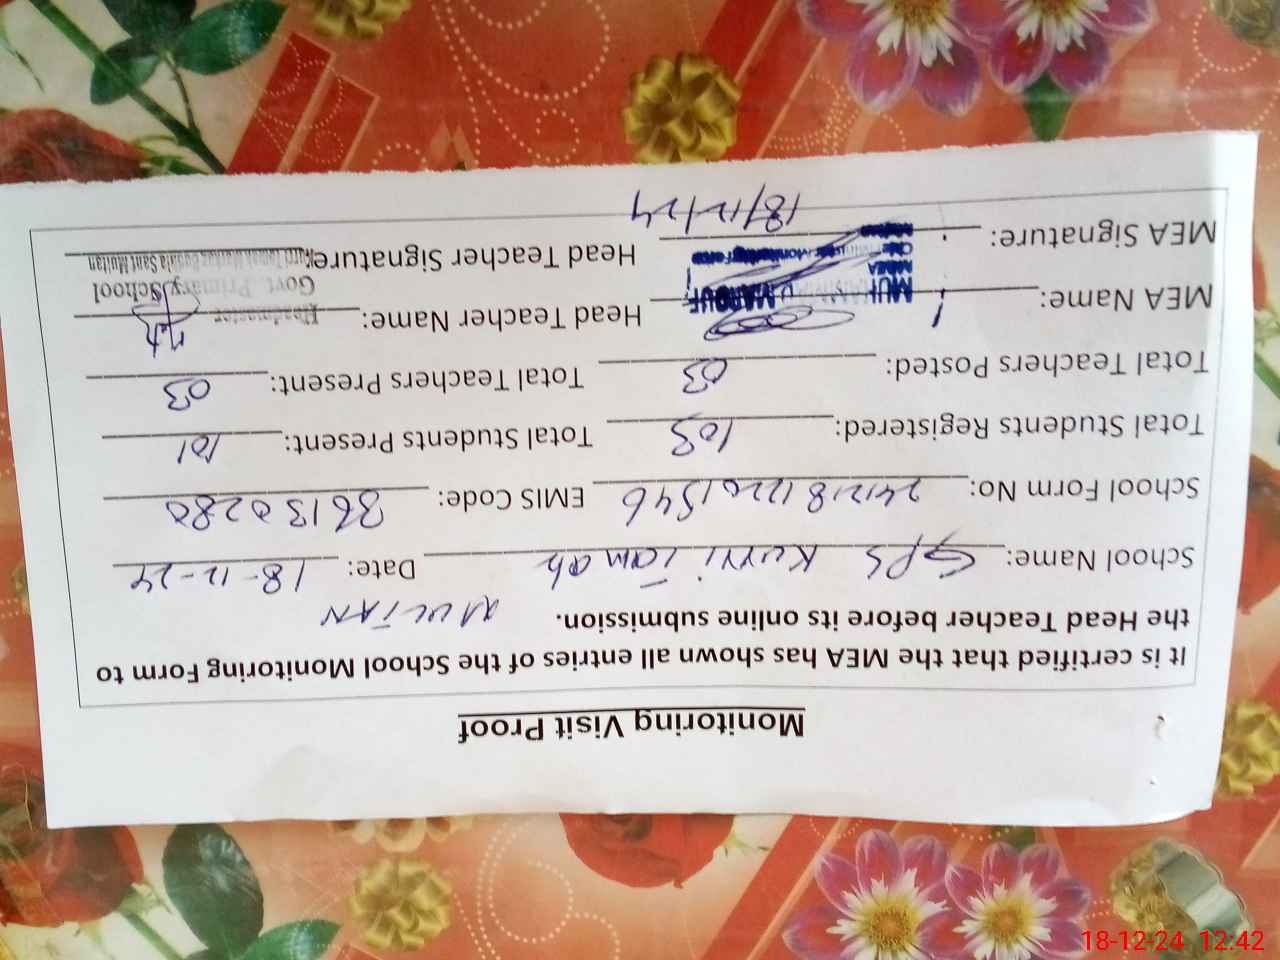 Monitoring Visit Proof
It is certified that the MEA has shown all entries of the School Monitoring Form to
the Head Teacher before its online submission. MULTAN
School Name: GPS Kurri Tamah Date: 18-12-24
School Form No: 24121812201546 EMIS Code: 36130280
Total Students Registered: 103 Total Students Present: 101
Total Teachers Posted: 03 Total Teachers Present: 03
MEA Name: MUHAMMAD MAROUF Head Teacher Name: Headmaster
MEA
Govt. Primary School
MEA Signature: Head Teacher Signature:
18/12/24
18-12-24 12:42